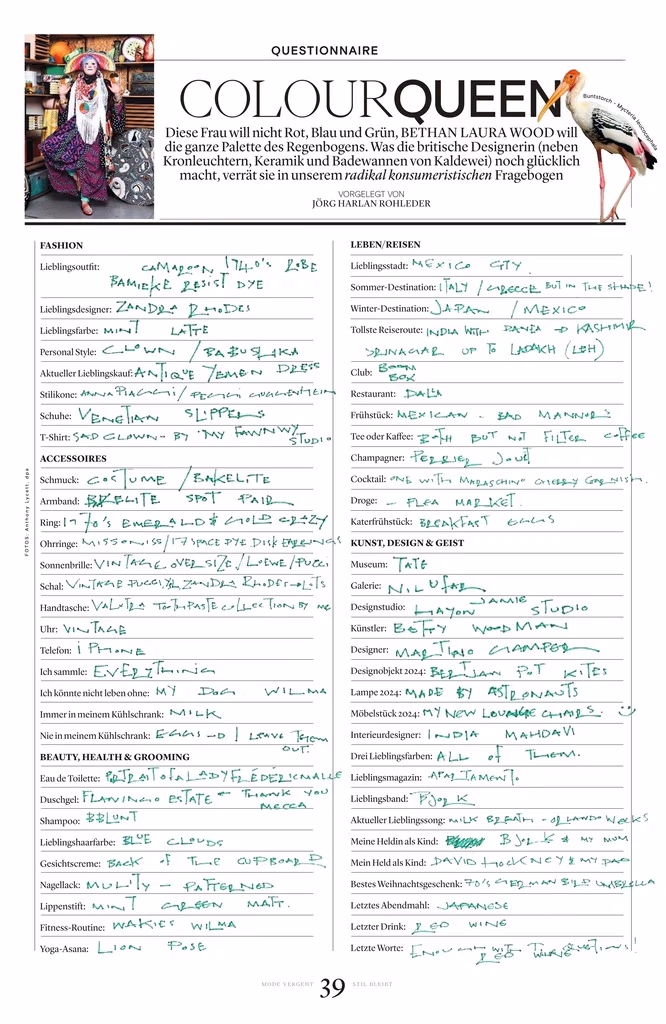 QUESTIONNAIRE
COLOURQUEEN
Buntstorch - Mycteria leucocephala
Diese Frau will nicht Rot, Blau und Grün, BETHAN LAURA WOOD will
die ganze Palette des Regenbogens. Was die britische Designerin (neben
Kronleuchtern, Keramik und Badewannen von Kaldewei) noch glücklich
macht, verrät sie in unserem radikal konsumeristischen Fragebogen
VORGELEGT VON
JÖRG HARLAN ROHLEDER
FOTOS: Anthony Lycett, dpa
FASHION
Lieblingsoutfit: 1740's ROBE
RESIST DYE
Lieblingsdesigner: ZANDRA RHODES
Lieblingsfarbe: MINT LATTE
Personal Style: CLOWN / BABUSHKA
Aktueller Lieblingskauf: ANTIQUE YEMEN DRESS
Stilikone: ANNA PIAGGI / PEGGI GUGGENHEIM
Schuhe: VENETIAN SLIPPERS
T-Shirt: SAD CLOWN - BY MY STUDIO
ACCESSOIRES
Schmuck: COSTUME / BAKELITE
Armband: SPOT PAIR
Ring: 1970's EMERALD & GOLD CRAZY
Ohrringe: MISSONISS / 17 SPACE DYE DISK EARRINGS
Sonnenbrille: VINTAGE OVERSIZE / LOEWE / PUCCI
Schal: VINTAGE PUCCI & ZANDRA RHODES - LOTS
Handtasche: VALEXTRA TOOTHPASTE COLLECTION BY ME
Uhr: VINTAGE
Telefon: iPHONE
Ich sammle: EVERYTHING
Ich könnte nicht leben ohne: MY DOG WILMA
Immer in meinem Kühlschrank: MILK
Nie in meinem Kühlschrank: EGGS → I LEAVE THEM
OUT.
BEAUTY, HEALTH & GROOMING
Eau de Toilette: PORTRAIT OF A LADY FRÉDÉRIC MALLE
Duschgel: FLAMINGO ESTATE ← THANK YOU
MECCA
Shampoo:
Lieblingshaarfarbe: BLUE CLOUDS
Gesichtscreme: BACK of THE CUPBOARD
Nagellack: MULTY - PATTERNED
Lippenstift: MINT GREEN MATT.
Fitness-Routine: WAKIES WILMA
Yoga-Asana: LION POSE
LEBEN/REISEN
Lieblingsstadt: MEXICO CITY
Sommer-Destination: ITALY / GREECE BUT IN THE SHADE!
Winter-Destination: JAPAN / MEXICO
Tollste Reiseroute: INDIA WITH → KASHMIR
SRINAGAR UP TO LADAKH (LEH)
Club: BOOM
BOX
Restaurant: DALIA
Frühstück: MEXICAN - BAD MANNORS
Tee oder Kaffee: BOTH BUT NOT FILTER COFFEE
Champagner: PERRIER JOUET
Cocktail: ONE WITH MARASCHINO CHERRY GARNISH.
Droge: - FLEA MARKET.
Katerfrühstück: BREAKFAST EGGS
KUNST, DESIGN & GEIST
Museum: TATE
Galerie: NILUFAR
Designstudio: JAMIE
HAYON STUDIO
Künstler: BETTY WOODMAN
Designer: MARTINO GAMPER
Designobjekt 2024: BERTJAN POT KITES
Lampe 2024: MADE BY ASTRONAUTS
Möbelstück 2024: MY NEW LOUNGE CHAIRS.
Interieurdesigner: INDIA MAHDAVI
Drei Lieblingsfarben: ALL of THEM.
Lieblingsmagazin: APARTAMENTO
Lieblingsband: BJORK
Aktueller Lieblingssong: MILK BREATH - ORLANDO WEEKS
Meine Heldin als Kind: BJORK & MY MUM
Mein Held als Kind: DAVID HOCKNEY & MY DAD
Bestes Weihnachtsgeschenk: 70's GERMAN BILD UMBRELLA
Letztes Abendmahl: JAPANESE
Letzter Drink: RED WINE
Letzte Worte: ENOUGH WITH THE QUESTIONS!
RED WINE
MODE VERGEHT 39 STIL BLEIBT